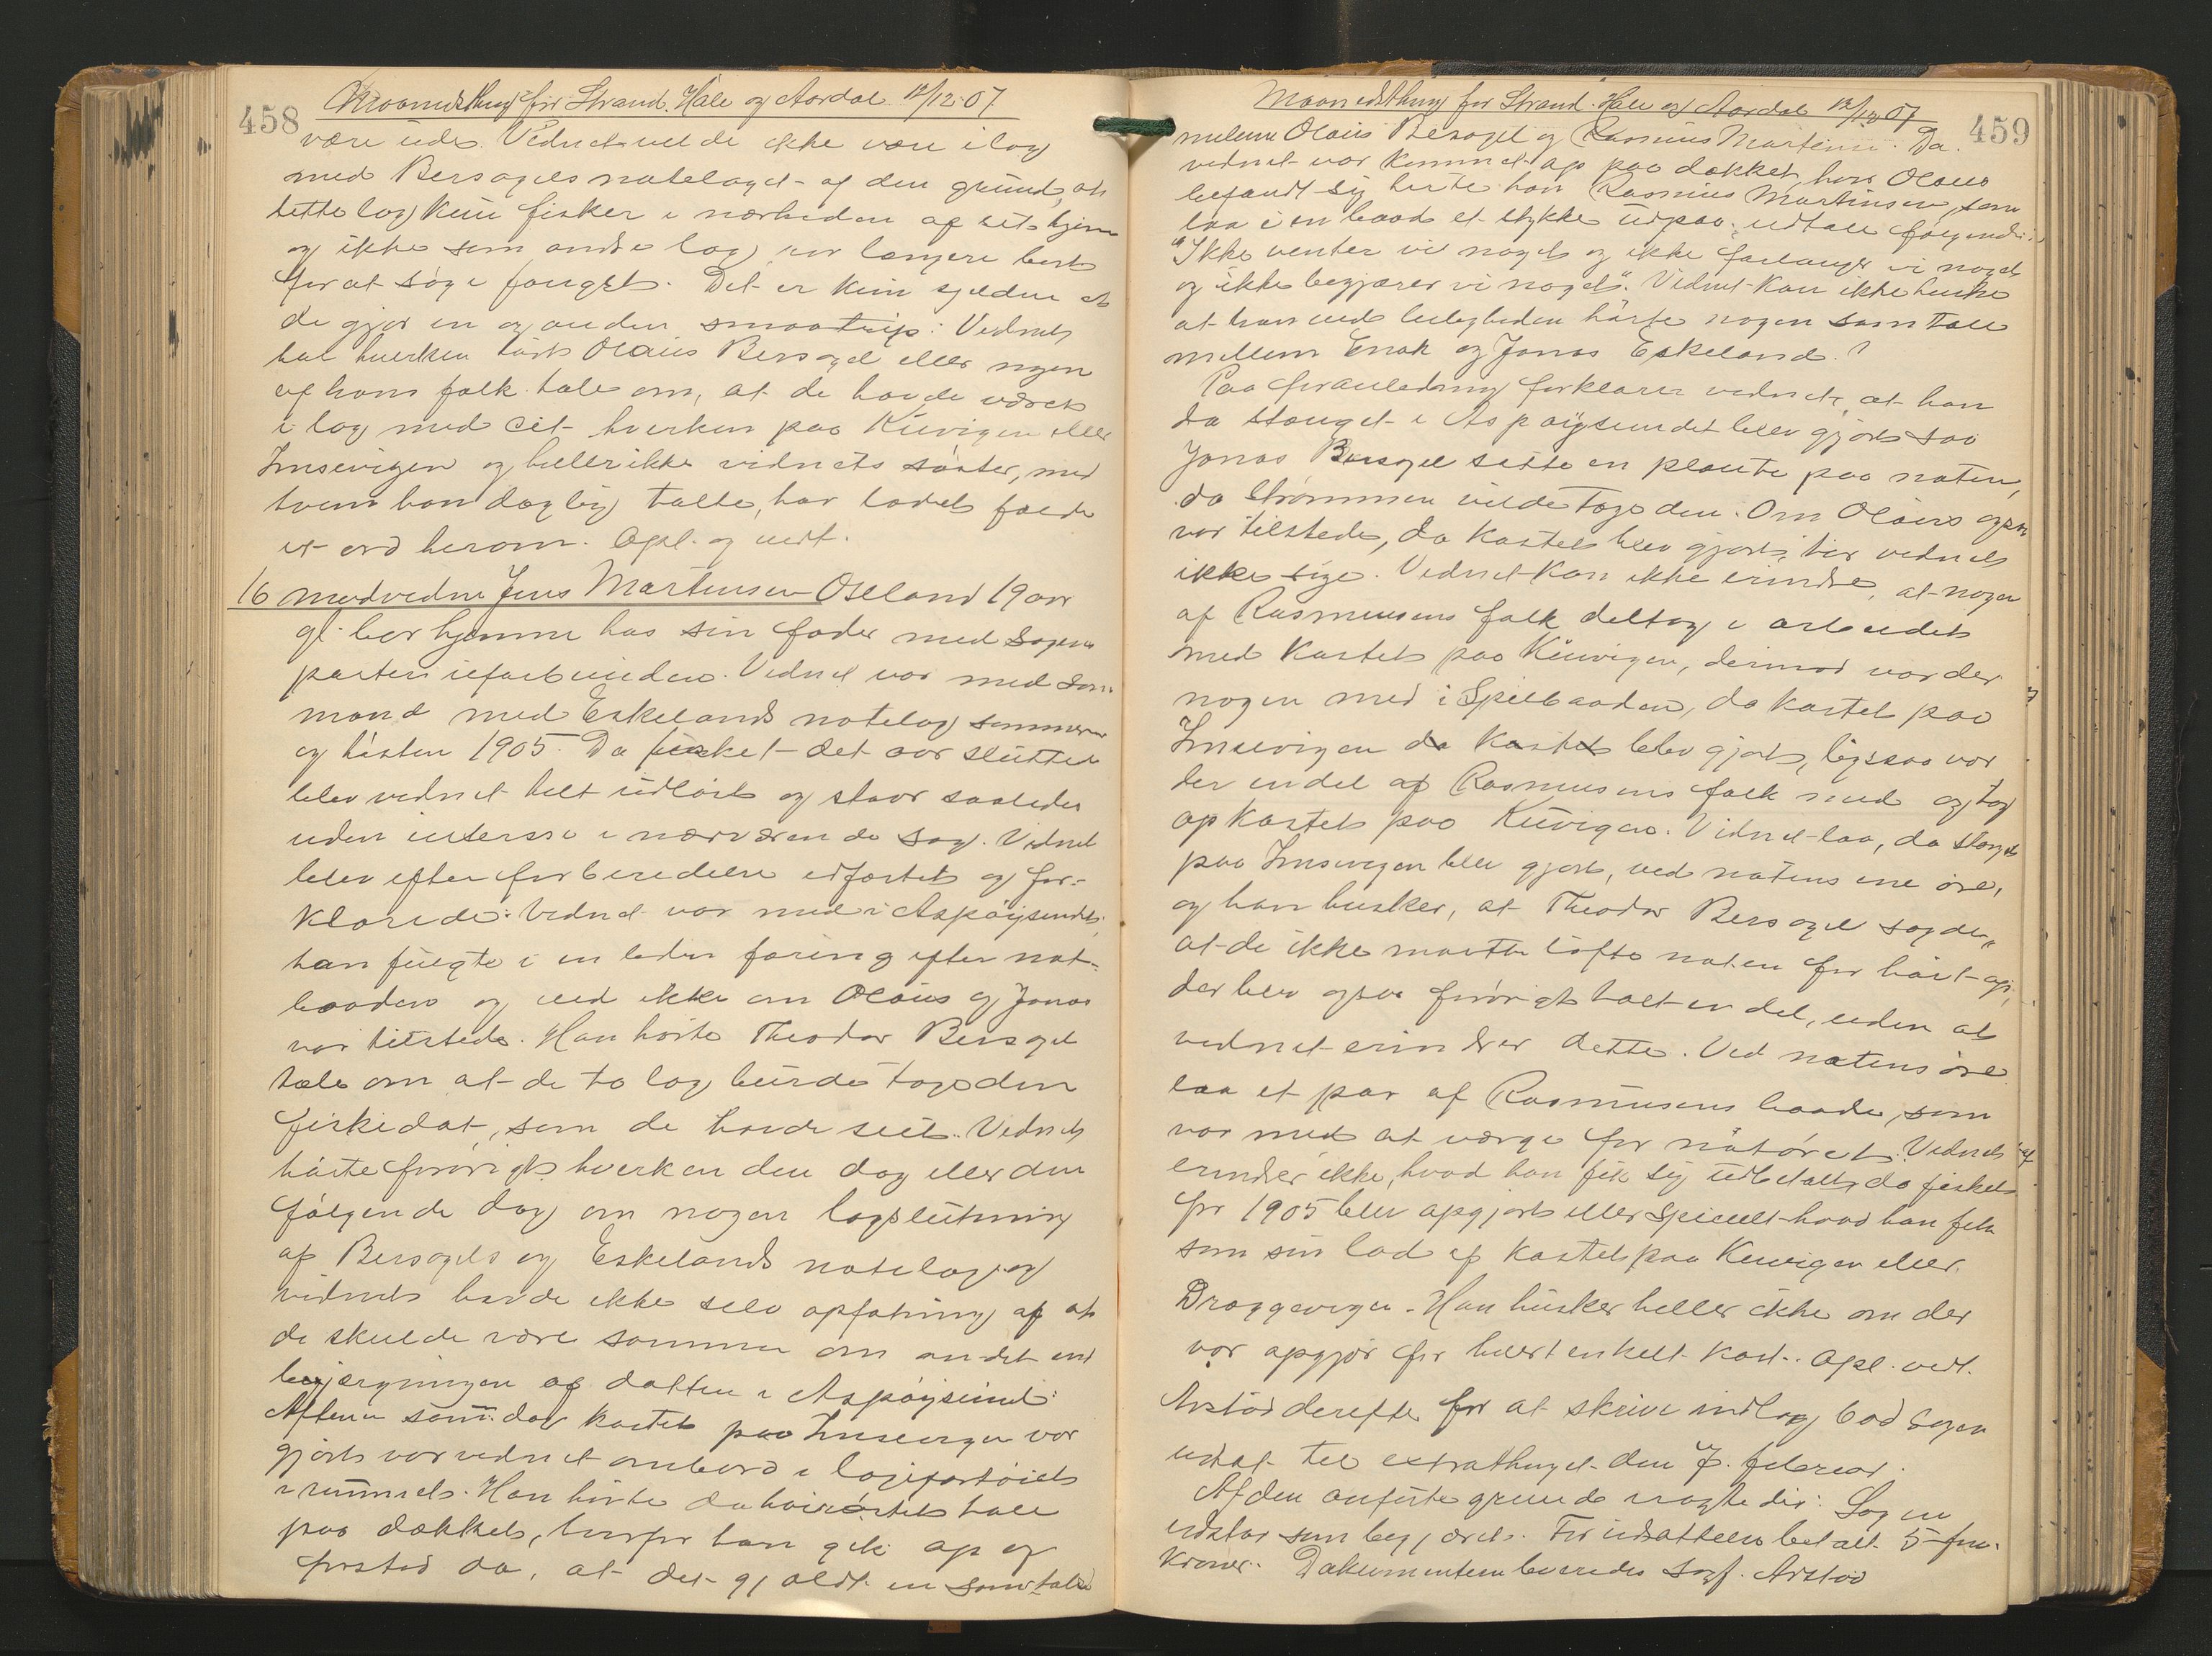 458
Maanedsthing for Strand. Hale og Aardal 12/12.07
være ude. Vidnet vilde ikke være ilag
med Bersagels notelaget af den grund, at
dette lag kun fisker i nærheden af sit hjem
og ikke som andre lag rør længere bort
for at søge fangst. Det er kun sjelden at
de gjør en og anden smaatrip. Vidnet
har hverken hørt Olaus Bersagel eller nogen
af hans folk tale om, at de havde været
i lag med sit hverken paa Kuvigen eller
Imsevigen og heller ikke vidnets søster, med
hvem han daglig talte, har ladet falde
et ord herom. Opl. og vedt.
16 modvidne Jens Martinsen Oseland 19 aar
gl. bor hjemme hos sin fader med sagens
parter uforbunden. Vidnet var med som
mand med Eskelands notelag sommeren
og høsten 1905. Da fisket det aar sluttet
blev vidnet helt udløst og staar saaledes
uden interesse i nærværende sag. Vidnet
blev efter forberedelse edfæstet og for-
klarede: Vidnet var med i Aspøysundet,
han fulgte i en liden færing efter not-
baaden og ved ikke om Olaus og Jonas
var tilstede. Han hørte Theodor Bersagel
tale om at de to lag burde tage den
fiskedot, som de havde seet. Vidnet
hørte forøvrigt hverken den dag eller den
følgende dag om nogen lagslutning
af Bersagels og Eskelands notelag og
vidnet havde ikke selv opfatning af at
de skulde være sammen om andet end
bjergningen af dotten i Aspøysund.
Aftenen som da kastet paa Imsevigen var
gjort var vidnet ombord i logifartøiet
i rummet. Han hørte da høirøstet tale
paa dækket, hvorfor han gik op og
forstod da, at det gjaldt en samtale
Maanedsthing for Strand. Hale og Aardal 12/12 07
459
mellem Olaus Bersagel og Rasmus Martinsen. Da
vidnet var kommet op paa dækket, hvor Olaus
befandt sig hørte han Rasmus Martinsen, som
laa i en baad et stykke udpaa, udtale følgende:
"Ikke venter vi noget og ikke forlanger vi noget
og ikke begjærer vi noget". Vidnet kan ikke huske
at han ved leiligheden hørte nogen samtale
mellem Enok og Jonas Eskeland.
Paa foranledning forklarer vidnet, at han
da stænget i Aspøysundet blev gjort saa
Jonas Bersagel sætte en planke paa noten,
da strømmen vilde tage den. Om Olaus ogsaa
var tilstede, da kastet blev gjort, tør vidnet
ikke sige. Vidnet kan ikke erindre, at nogen
af Rasmusens folk deltog i arbeidet
med kastet paa Kuvigen, derimod var der
nogen med i Spilbaaden, da kastet paa
Imsevigen da kastet blev gjort, ligesaa var
der endel af Rasmusens folk med og tog
op kastet paa Kuvigen. Vidnet laa, da stænget
paa Imsevigen blev gjort, ved notens ene øre,
og han husker, at Theodor Bersagel sagde,
at de ikke maatte løfte noten for høit op,
der blev ogsaa forøvrigt talt en del, uden at
vidnet erindrer dette. Ved notens øre
laa et par af Rasmusens baade, som
var med at værge for notøret. Vidnet
erindrer ikke, hvad han fik sig udbetalt, da fisket
for 1905 blev opgjort eller specielt hvad han fik
som sin lod af kastet paa Kuvigen eller
Draggevigen. Han husker heller ikke om der
var opgjør for hvert enkelt kast. Opl. vedt.
Arstad derefter for at skrive indlæg bad sagen
udsat til extrathinget den 7. februar.
Af den anførte grund vragtedes: Sagen
udstaar som begjæret. For udsættelse betalt 5 fem
kroner. Dokumenterne leveredes Sagf. Arstad